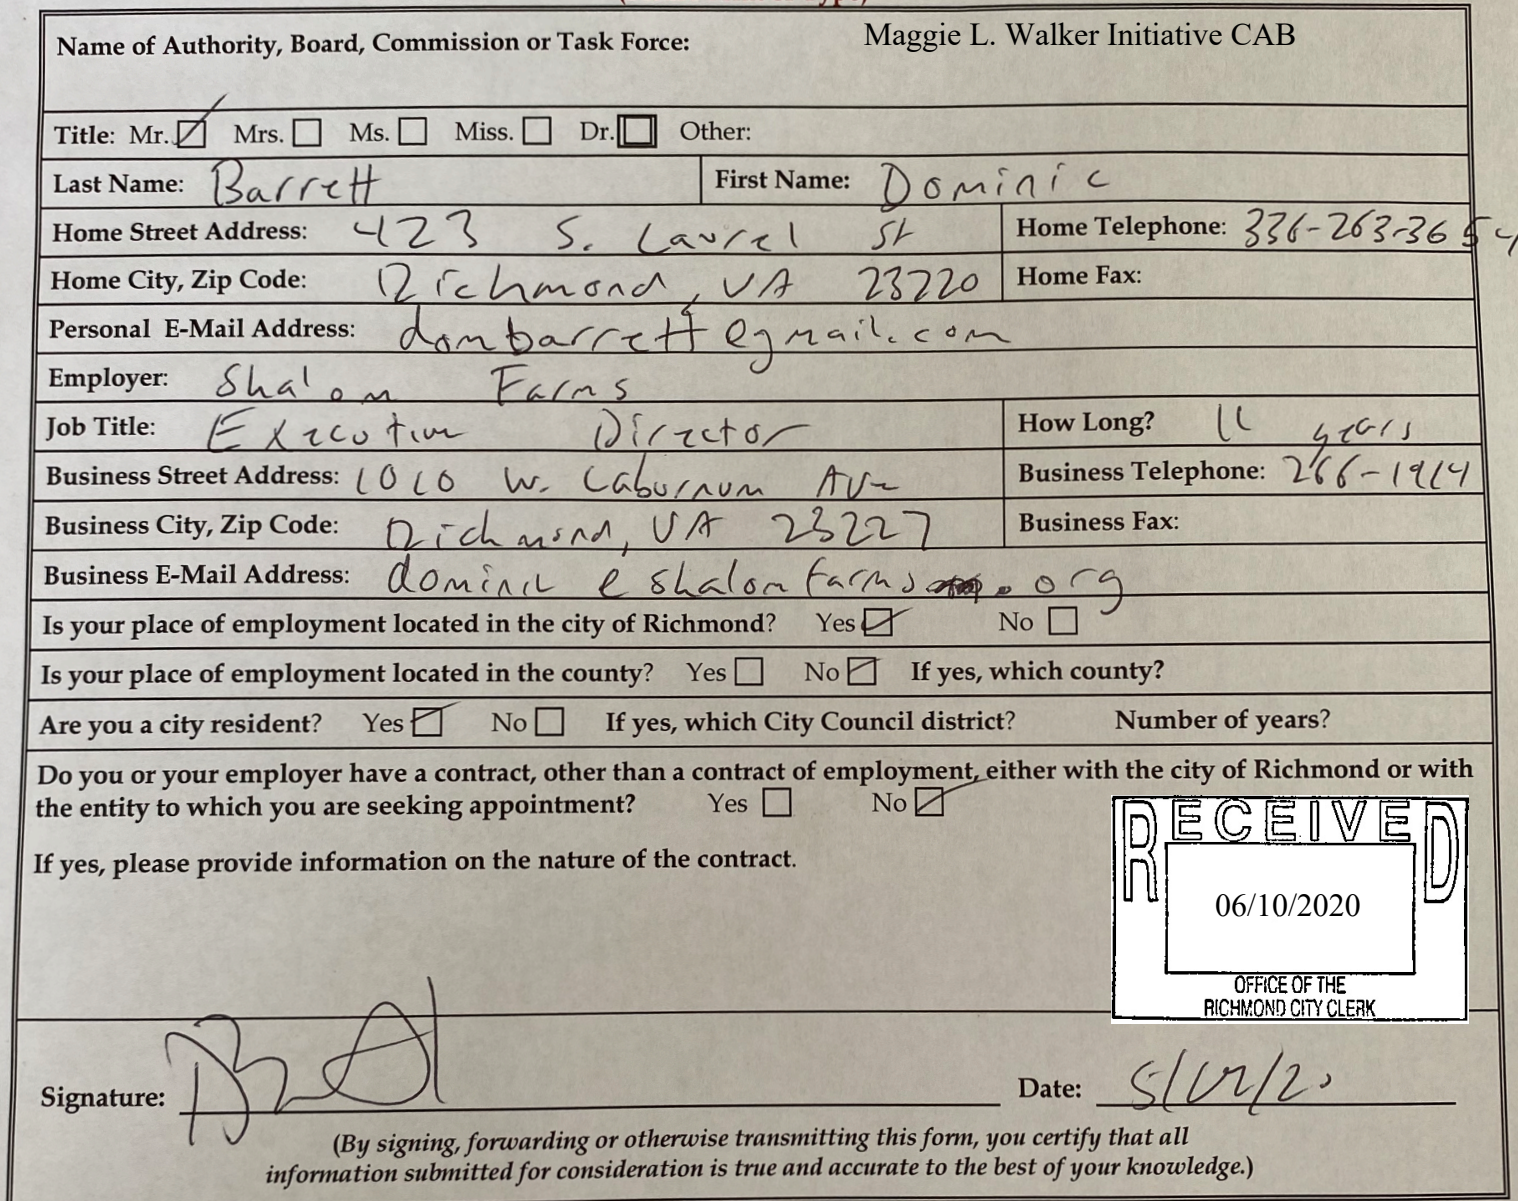 Name of Authority, Board, Commission or Task Force: Maggie L. Walker Initiative CAB
Title: Mr. Mrs. Ms. Miss. Dr. Other:
Last Name: Barrett First Name: Dominic
Home Street Address: 423 S. Laurel St Home Telephone: 336-263-3654
Home City, Zip Code: Richmond, VA 23220 Home Fax:
Personal E-Mail Address: dombarrett@gmail.com
Employer: Shalom Farms
Job Title: Executive Director How Long? 11 years
Business Street Address: 1010 W. Laburnum Ave Business Telephone: 266-1914
Business City, Zip Code: Richmond, VA 23227 Business Fax:
Business E-Mail Address: dominic@shalomfarms.org
Is your place of employment located in the city of Richmond? Yes No
Is your place of employment located in the county? Yes No If yes, which county?
Are you a city resident? Yes No If yes, which City Council district? Number of years?
Do you or your employer have a contract, other than a contract of employment, either with the city of Richmond or with
the entity to which you are seeking appointment? Yes No
If yes, please provide information on the nature of the contract.
RECEIVED
06/10/2020
OFFICE OF THE
RICHMOND CITY CLERK
Signature: Date:
(By signing, forwarding or otherwise transmitting this form, you certify that all
information submitted for consideration is true and accurate to the best of your knowledge.)